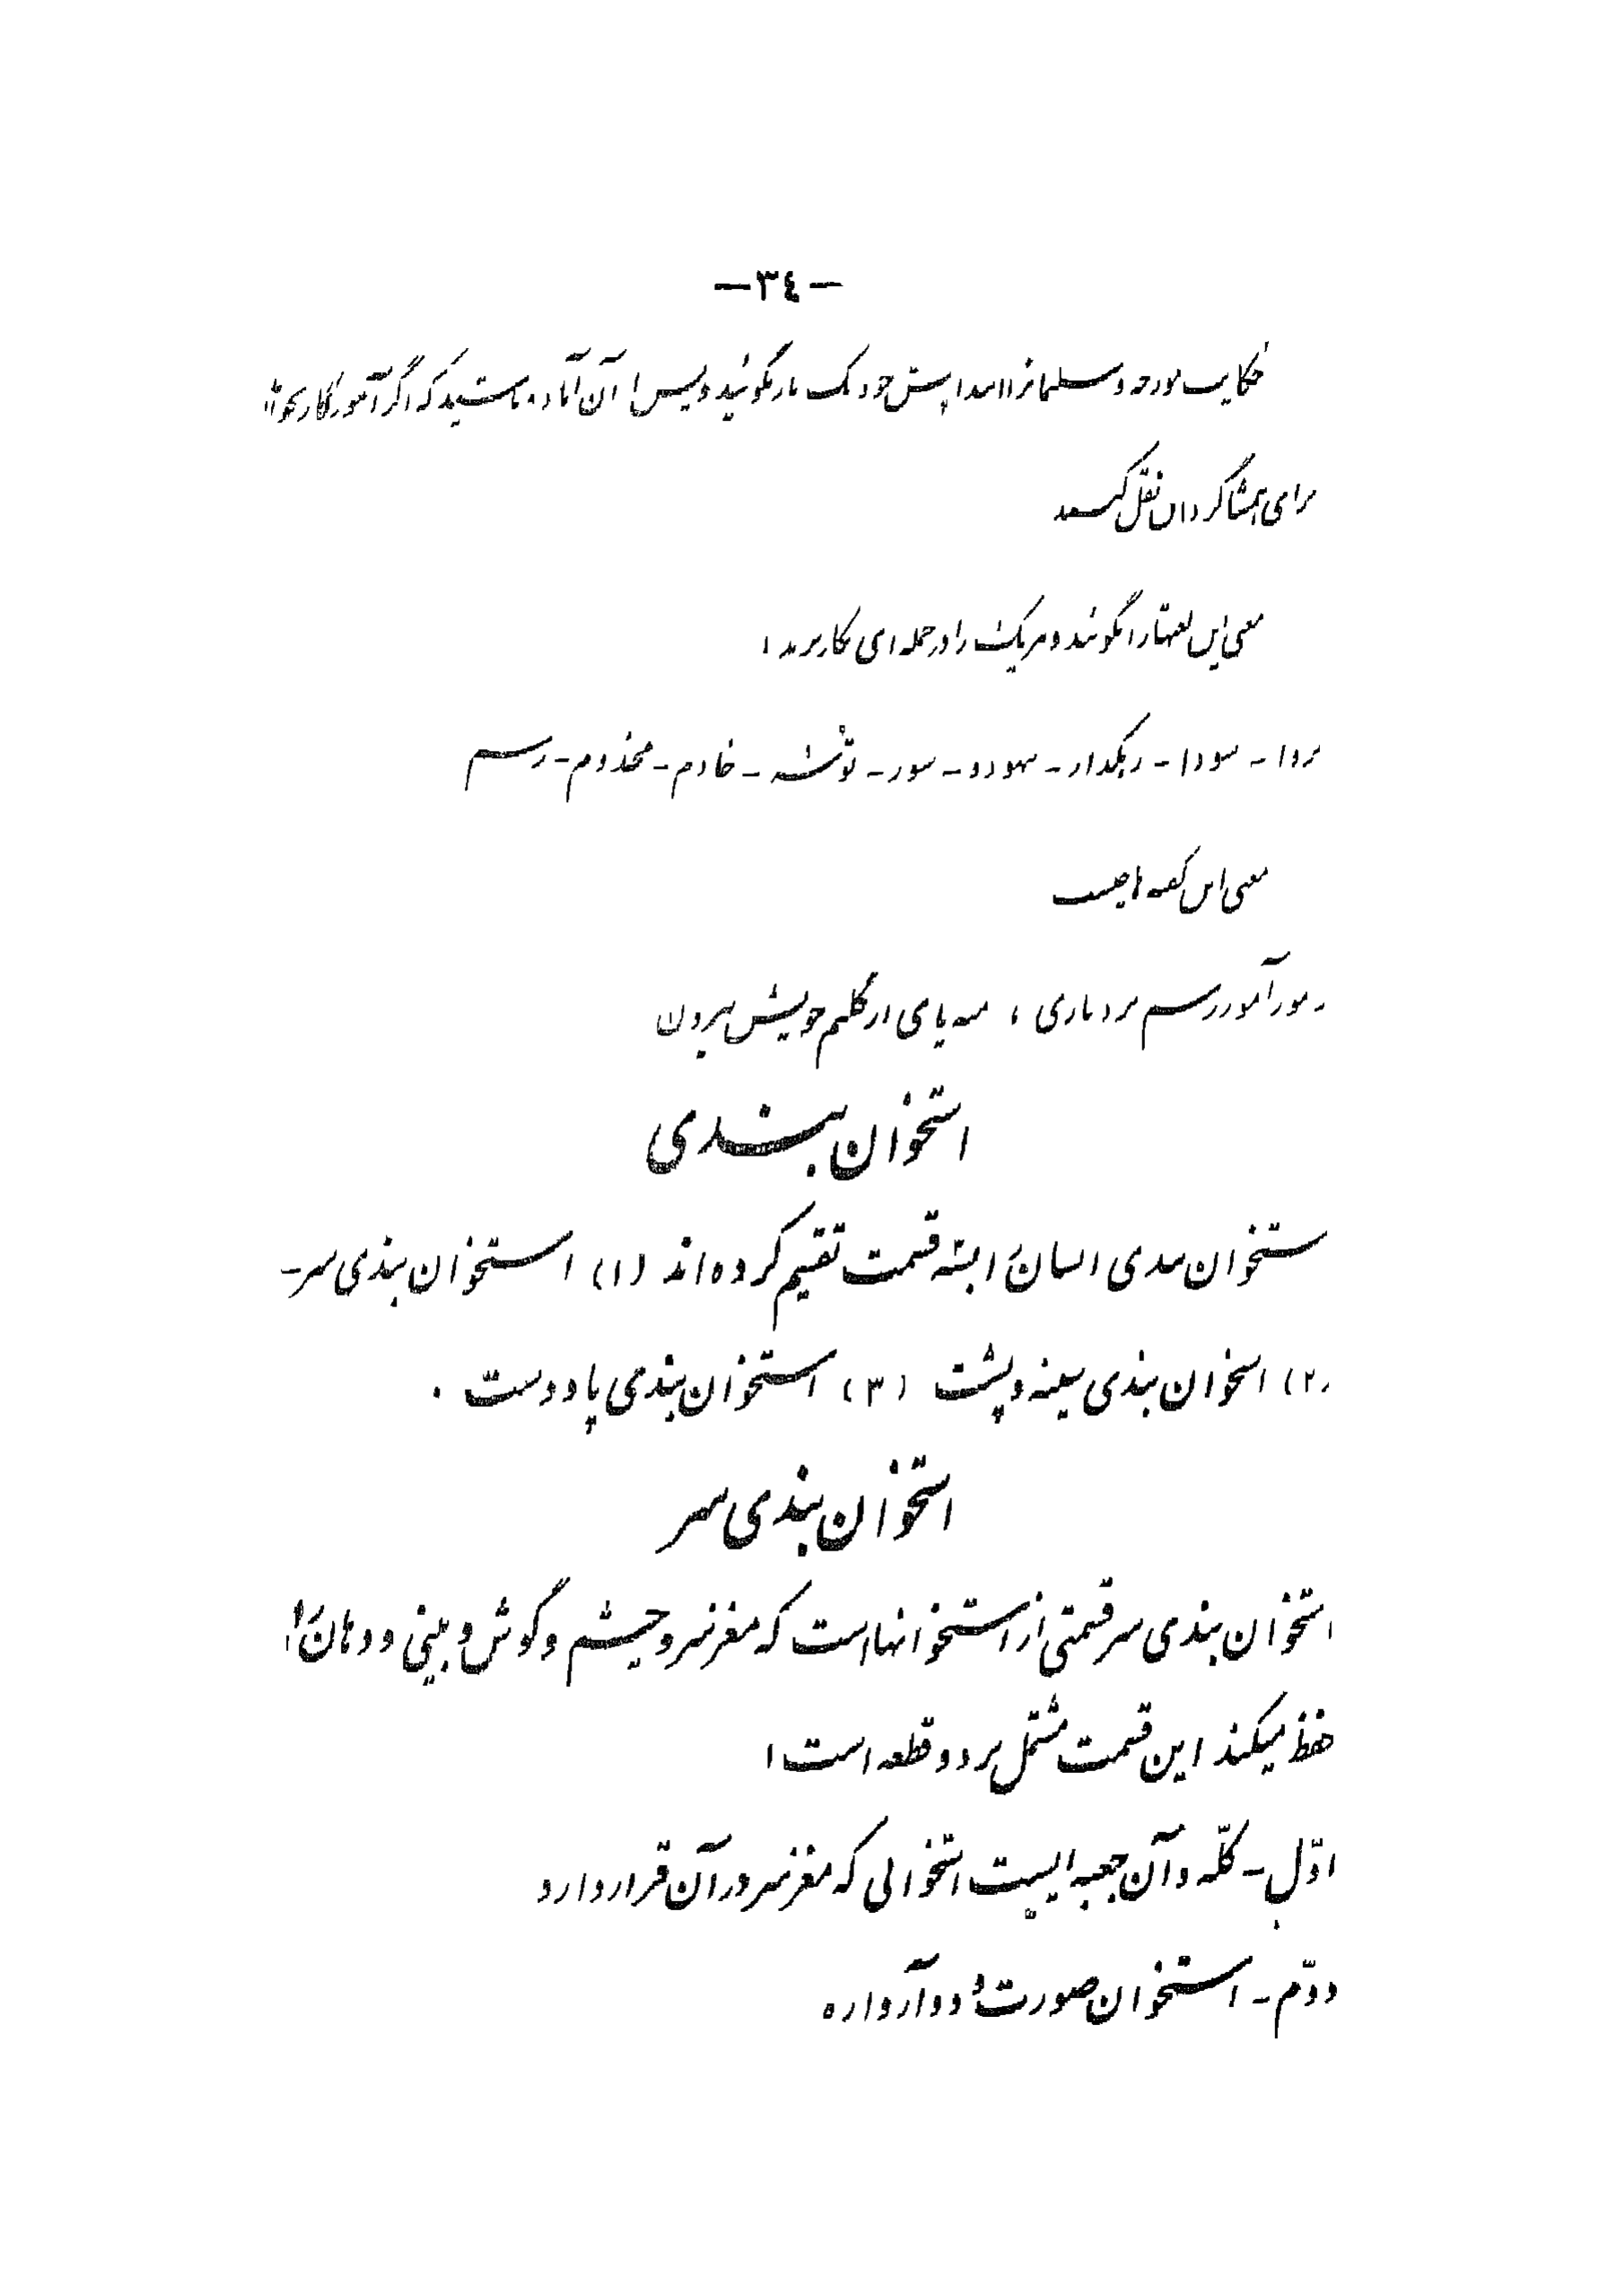 -٣٤-
حکایت مورچه و سلیمان را ابتدا پیش خود یک بار بگوئید و پس از آن آماده باشید که اگر آموزگار بخواهد
برای همشاگردان نقل کنید
معنی این لغتها را بگوئید و هریک را در جمله‌ای بکار برید :
سودا - رهگذار - - مور - توشه - خادم - مخدوم - رسم
معنی این گفته ها چیست
ز مور آموز رسم بردباری ، منه پای از گلیم خویش بیرون
استخوان بندی
استخوان بندی انسان را بسه قسمت تقسیم کرده‌اند (۱) استخوان بندی سر -
(۲) استخوان بندی سینه و پشت (۳) استخوان بندی پا و دست .
استخوان بندی سر
استخوان بندی سر قسمتی از استخوانها است که مغز سر و چشم و گوش و بینی و دهان را
حفظ میکند این قسمت مشتمل بر دو قطعه است :
اوّل - کلّه و آن جعبه ایست استخوانی که مغز سر در آن قرار دارد
دوّم - استخوان صورت و دو آرواره